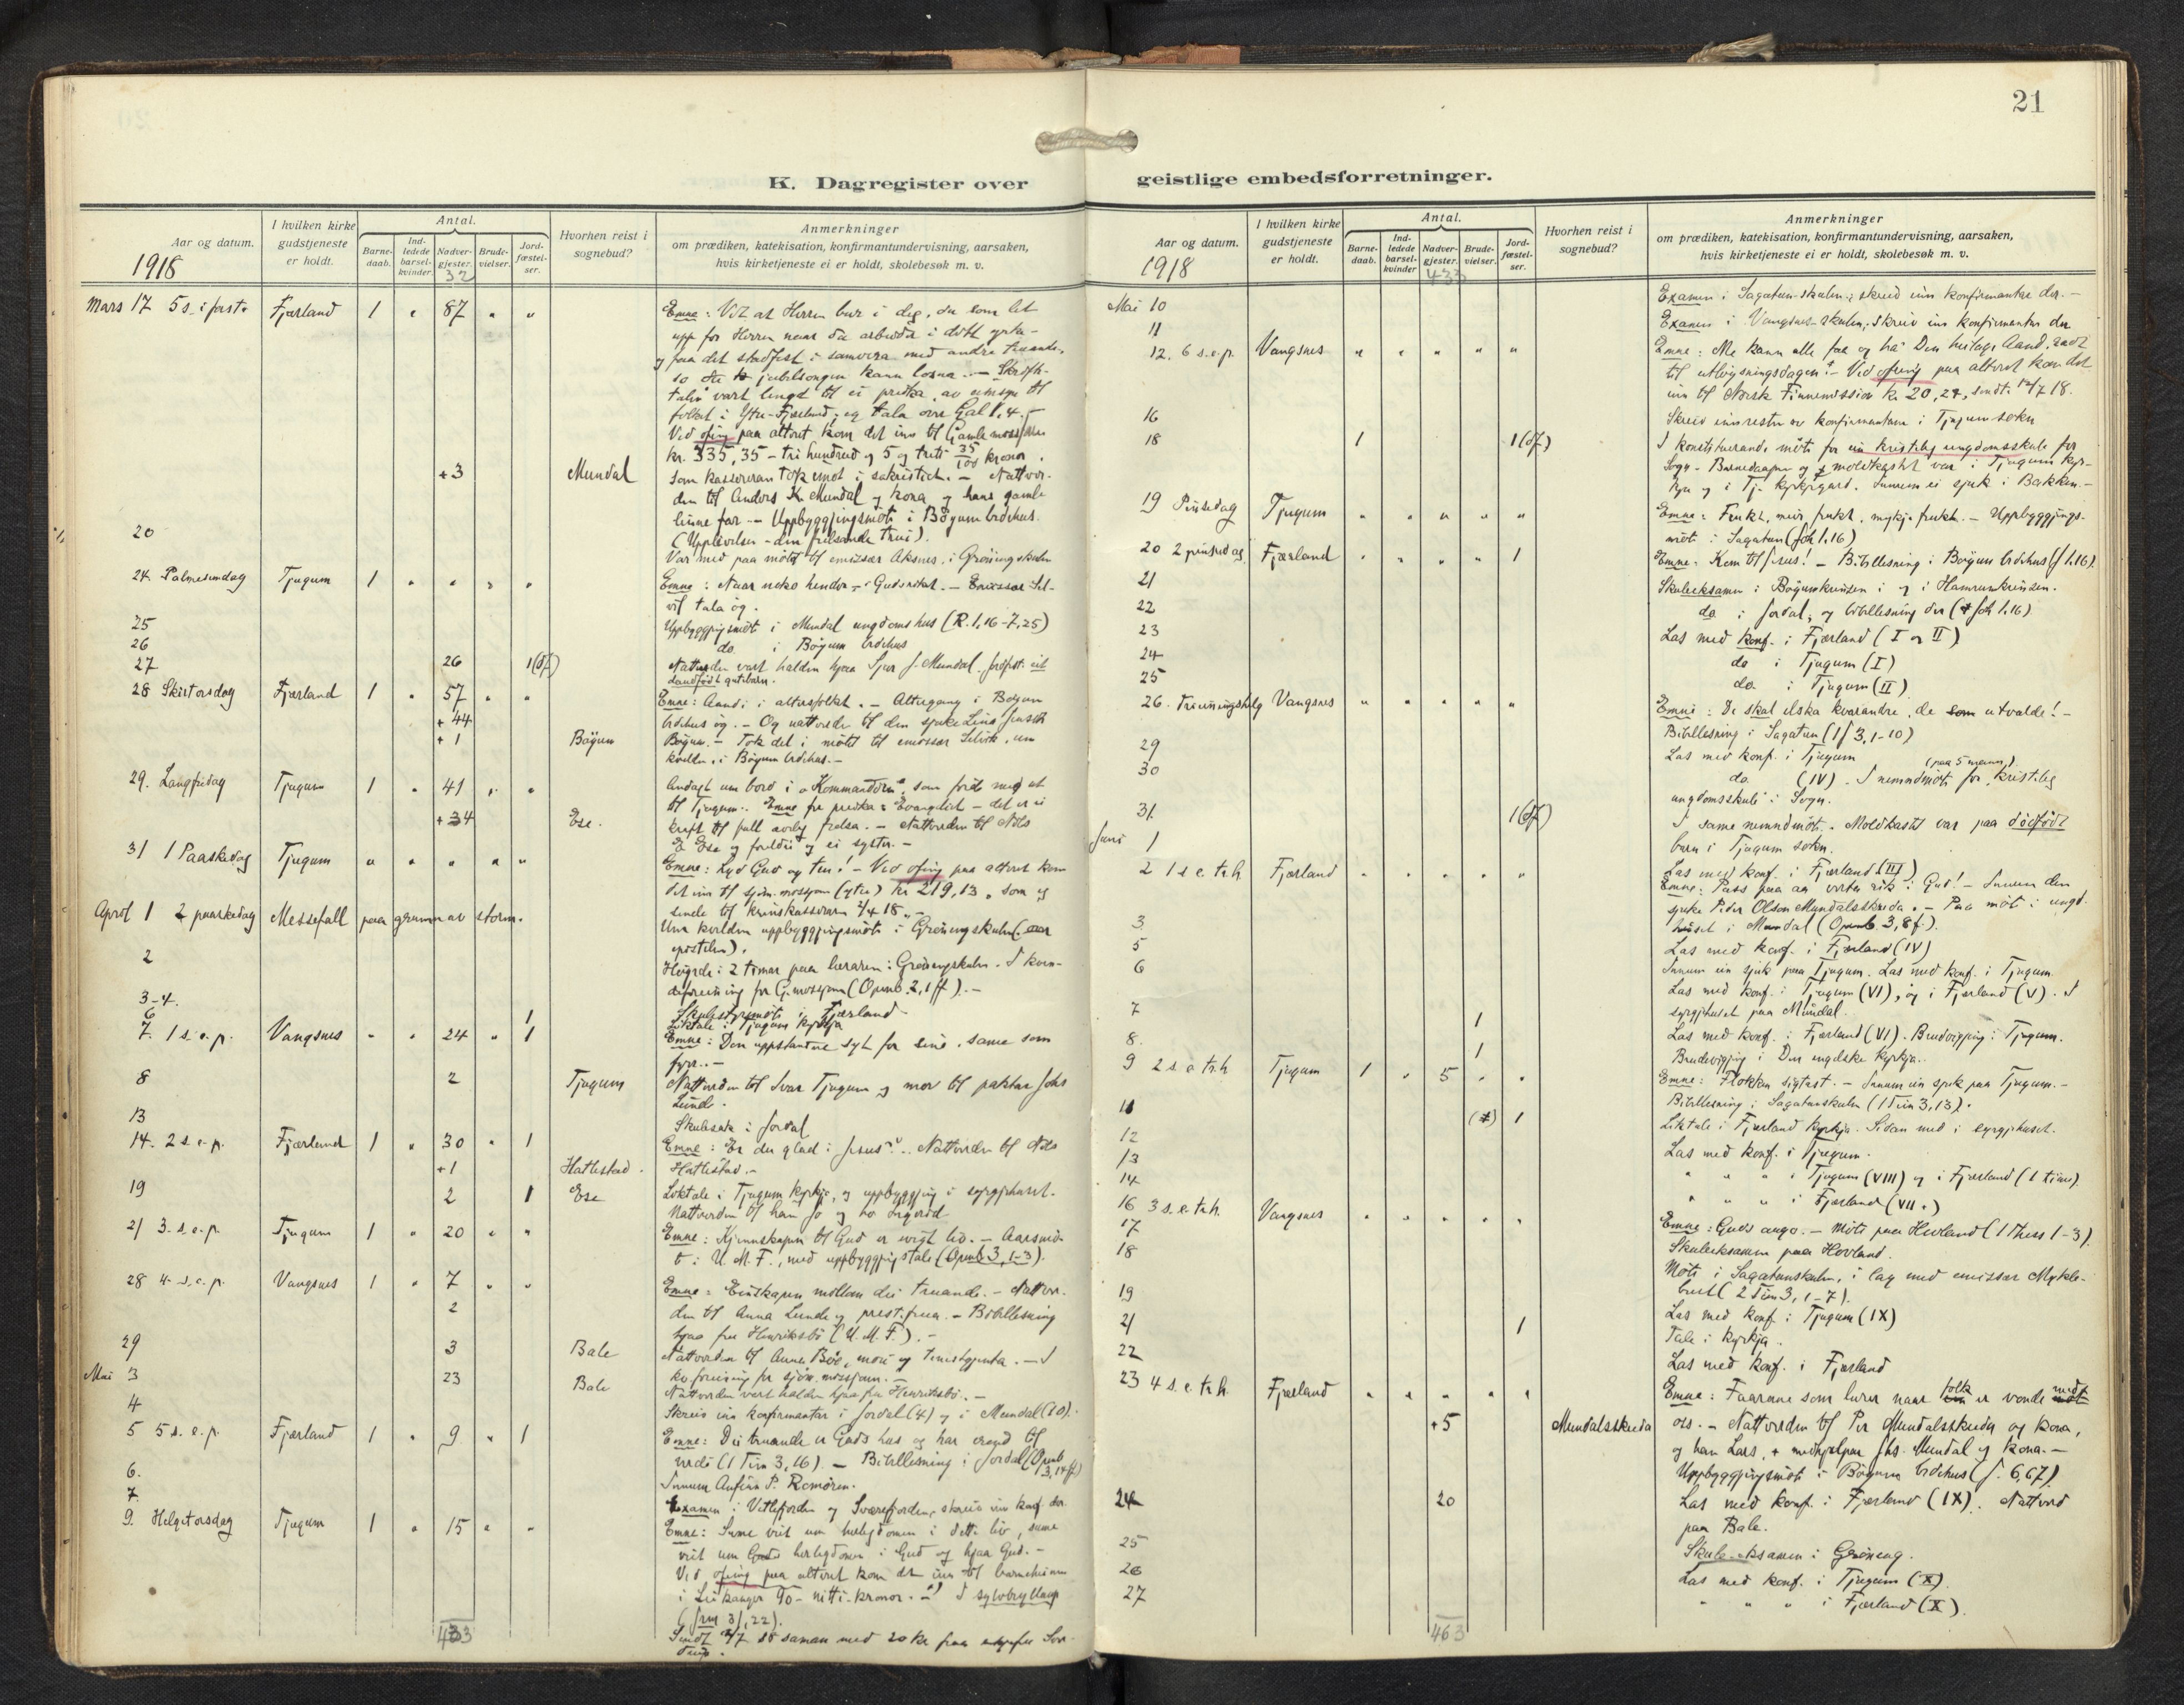 21
K. Dagregister over geistlige embedsforretninger.
Aar og datum.
1918
I hvilken kirke gudstjeneste er holdt.
Antal.
Barne-daab.
Ind-ledede barsel-kvinder.
Nadver-gjester.
32
Brude-vielser.
Jord-fæstel-ser.
Hvorhen reist i sognebud?
Anmerkninger
om prædiken, katekisation, konfirmantundervisning, aarsaken,
hvis kirketjeneste ei er holdt, skolebesøk m. v.
Mars 17 5 s. i fast. Fjærland 1 " 87 " " Emne: Vit at Herren bur i deg, du som let
upp for Herren naar du arbeider i ditt yrke -
og faa det stadfest i samvera med andre truande,
so at jubelsongen kann losna. -
folket i Ytre-Fjærland; eg tala over Gal 1,4. -
Ved ofring paa altaret kom det inn til
kr. 335,35 - tri hundrad og 5 og treti 35/100 kronor.
+3 Mundal som kasseraren tok imot i sakristiet. - Nattver-
den til Anders K. Mundal og kona og hans gamle
far -- Uppbyggjingsmöte i Böyum bedehus.
20
Var med paa mötet til emissær Aksnes, i Gröningskulen
24 Palmesundag Tjugum 1 " " " " Emne: Naar
tala og.
25 Uppbyggjingsmöte i Mundal ungdomshus (R. 1,16-7,25)
26 do. i Böyum bedehus
27 26 1(df) Nattverden vart halden hjaa Sjur J. Mundal.
daudfödt gutebarn.
28 Skirtorsdag Fjærland 1 " 57 " " Emne: Aand i altarfolket. - Altargang i Böyum
+44 bedehus og. - Og nattverde til den sjuke
+1 Böyum Böyum. - Tok del i mötet til emissær
kvelden, i Böyum bedehus. -
29. Langfridag Tjugum 1 " 41 " " Andagt um bord i "Kommandören", som förde meg ut
til Tjugum. Emne fra preika: Evangeliet - det er ei
+34 Ese. kraft til full frelsa. - Nattverden til Nils
E. Ese og foreldre og ei syster. -
31 1 Paaskedag Tjugum " " " " " Emne: Lyd Gud og ten! - Ved ofring paa altaret kom
det inn til sjöm.misjonen (ytre) kr 219,13, som eg
sende til krinskasseraren 2/4 18. -
April 1 2 paaskedag Messefall paa grunn av storm.
Um kvelden uppbyggjingsmöte i Gröningskulen
2
Höyrde i 2 timar paa læraren i Gröningskulen. I kvin-
deforeining for (Openb. 2,1 ff). -
3-4. Skulestyremöte i Fjærland
6 1 Liktale i Tjugum kyrkja
7. 1 s. e. p. Vangsnes " " 24 " 1 Emne: Den uppstandne syt for sine. same som
fyrr. -
8 2 Tjugum Nattverden til Ivar Tjugum og mor til
Lunde.
13 Skulesak i Jordal
14. 2 s. e. p. Fjærland 1 " 30 " 1 Emne: Er du glad i Jesus? - Nattverden til Nils
+1 Hatlestad. Hatlestad. -
19 2 1 Ese Liktale i Tjugum kyrkje, og uppbyggjing i syrgjehuset.
21 3. s. e. p. Tjugum 1 " 20 " " Emne: Kjennskapen til Gud er evigt liv. - Aarsmö-
te i U. M. F., med uppbyggjingstale (Openb 3,1-3).
28 4. s. e. p. Vangsnes 1 " 7 " " Emne: Einskapen millom dei truande. - Nattver-
2 den til Anna Lunde og - Bibellesning
hjaa fru Henriksbö (U. M. F.). -
29 3 Bale Nattverden til Anna Böe, mori og tenestgjenta. - I
kv.foreining for sjöm.misjonen. -
Mai 3 23 Bale Nattverden vart halden hjaa fru Henriksbö. -
4 Skreiv inn konfirmantar i Jordal (4) og i Mundal (10).
5 5 s. e. p. Fjærland 1 " 9 " 1 Emne: Dei truande er Guds hus og har
(1 Tim 3,16). - Bibellesning i Jordal (Openb 3,14 ff)
6. Innum Anfinn P. Romören.
7. Examen i Vetlefjorden og Sværefjorden; skreiv inn konf. der.
9. Helgetorsdag Tjugum 1 " 15 " " Emne: Sume veit um herlegdomen i dette liv, sume
veit um herlegdomen i Gud og hjaa Gud. -
Ved ofring paa altaret kom det inn til barneheimen
i Leikanger 90 - nitti - kronor. - I sylvbryllaup
(Jrm 31,22).
433
Aar og datum.
1918
I hvilken kirke gudstjeneste er holdt.
Antal.
Barne-daab.
Ind-ledede barsel-kvinder
Nadver-gjester.
433
Brude-vielser.
Jord-fæstel-ser.
Hvorhen reist i sognebud?
Anmerkninger
om prædiken, katekisation, konfirmantundervisning, aarsaken,
hvis kirketjeneste ei er holdt, skolebesøk m. v.
Mai 10 Examen i Sagatun-skulen; skreiv inn konfirmantar der. -
11 Examen i Vangsnes-skulen; skreiv inn konfirmantar der
12. 6 s. e. p. Vangsnes " " " " " Emne: Me kann alle faa og ha Den heilage Aand,
til utlöysningsdagen. - Ved ofring paa altaret kom det
inn til Norsk Finnemission kr 20,27, sendt 14/7 18.
16 Skreiv inn resten av konfirmantane i Tjugum sokn
18 1 1(df) I konstituerande möte for ein kristeleg ungdomsskule for
Sogn - Barnedaapen og moldkastet var i Tjugum kyr-
kje og i Tj. kyrkjegard. Innum ei sjuk i Bakken. -
19 Pinsedag Tjugum " " " " " Emne: Frukt, meir frukt, mykje frukt. - Uppbyggjings-
möte i Sagatun (Joh 1.16)
20 2 pinsedag Fjærland " " " " 1 Emne: Kom til Jesus! - Bibellesning i Böyum bedehus (J 1.16).
21 Skuleeksamen i Böyumkrinsen i og i Hamrumkrinsen.
22 do i Jordal; og bibellesning der (Joh 1.16)
23 Las med konf. i Fjærland (I og II)
24 do i Tjugum (I)
25 do. i Tjugum (II)
26. Treeiningshelg Vangsnes " " " " " Emne: De skal elska kvarandre, de som utvalde! -
Bibellesning i Sagatun (1 J 3,1-10)
29 Las med konf. i Tjugum
30 do. (IV) - I nemndmöte for (paa 5 mann) kristeleg
ungdomsskule i Sogn.
31. 1(df) I same nemndmöte. Moldkastet var paa dödfödt
barn i Tjugum sokn.
Juni 1 Las med konf. i Fjærland (III)
2 1 s e. tr.h. Fjærland " " " " " Emne: Pass paa aa verta rik i Gud! - Innum den
sjuke Peder Olson Mundalsskreda. - Paa möte i ungd.
huset i Mundal (Openb. 3,8 f).
3. Las med konf. i Fjærland (IV)
5 Innum ein sjuk paa Tjugum. Las med konf. i Tjugum.
6 Las med konf. i Tjugum (VI), og i Fjærland (V). I
syrgjehuset paa Mundal.
7 1 Las med konf. i Fjærland (VI). Brudvigjing i Tjugum.
8. 1 Brudevigjing i Den engelske kyrkja.
9 2 s. e tr.h Tjugum 1 " 5 " " Emne: Flokken sigtast. - Innum ein sjuk paa Tjugum. -
Bibellesning i Sagatunskulen (1 Tim 3,13).
11 1 Liktale i Fjærland kyrkja. Sidan med i syrgjehuset.
12 Las med konf. i Tjugum.
13 " " " i Tjugum (VIII) og i Fjærland (1 time).
14 " " " i Fjærland (VII.)
16 3 s. e. tr.h. Vangsnes " " " " " Emne: Guds augo. - Möte paa Hovland (1 Thess 1-3).
17 Skuleeksamen paa Hovland.
18 Möte i Sagatunskulen, i lag med emissær Mykle-
bust (2 Tim 3, 1-7).
19 Las med konf. i Tjugum (IX)
21 1 Tale i kyrkja.
22 Las med konf. i Fjærland
23 4 s. e. tr.h. Fjærland " " " " " Emne: Faarane som lurer naar folk er vonde med
+5 Mundalsskreda oss. - Nattverden til Per Mundalsskreda og kona,
og han Lars, + medhjelpar Johs. Mundal og kona. -
Uppbyggjingsmöte i Böyum bedehus (J. 6,67)
24 20 Las med konf. i Fjærland (IX). Nattverd
paa Bale.
25 Skule-eksamen i Gröneng.
26 Las med konf. i Tjugum (X).
27 " " " i Fjærland (X).
463